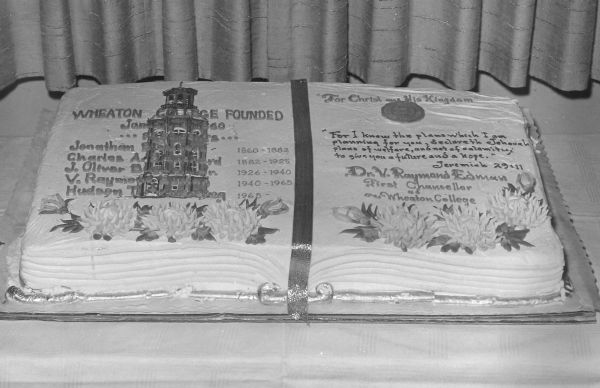 WHEATON FOUNDED
Jonathan 1860-1882
Charles A 1882-1925
J. Oliver 1926-1940
V. 1940-1965
Hudson
"For Christ and His Kingdom"
"For I know the plans which I am
planning for you, declareth Jehovah
plans of welfare, and not of calamity
to give you a future, and a hope."
Jeremiah 29:11
Dr. V. Raymond Edman
First Chancellor
of Wheaton College